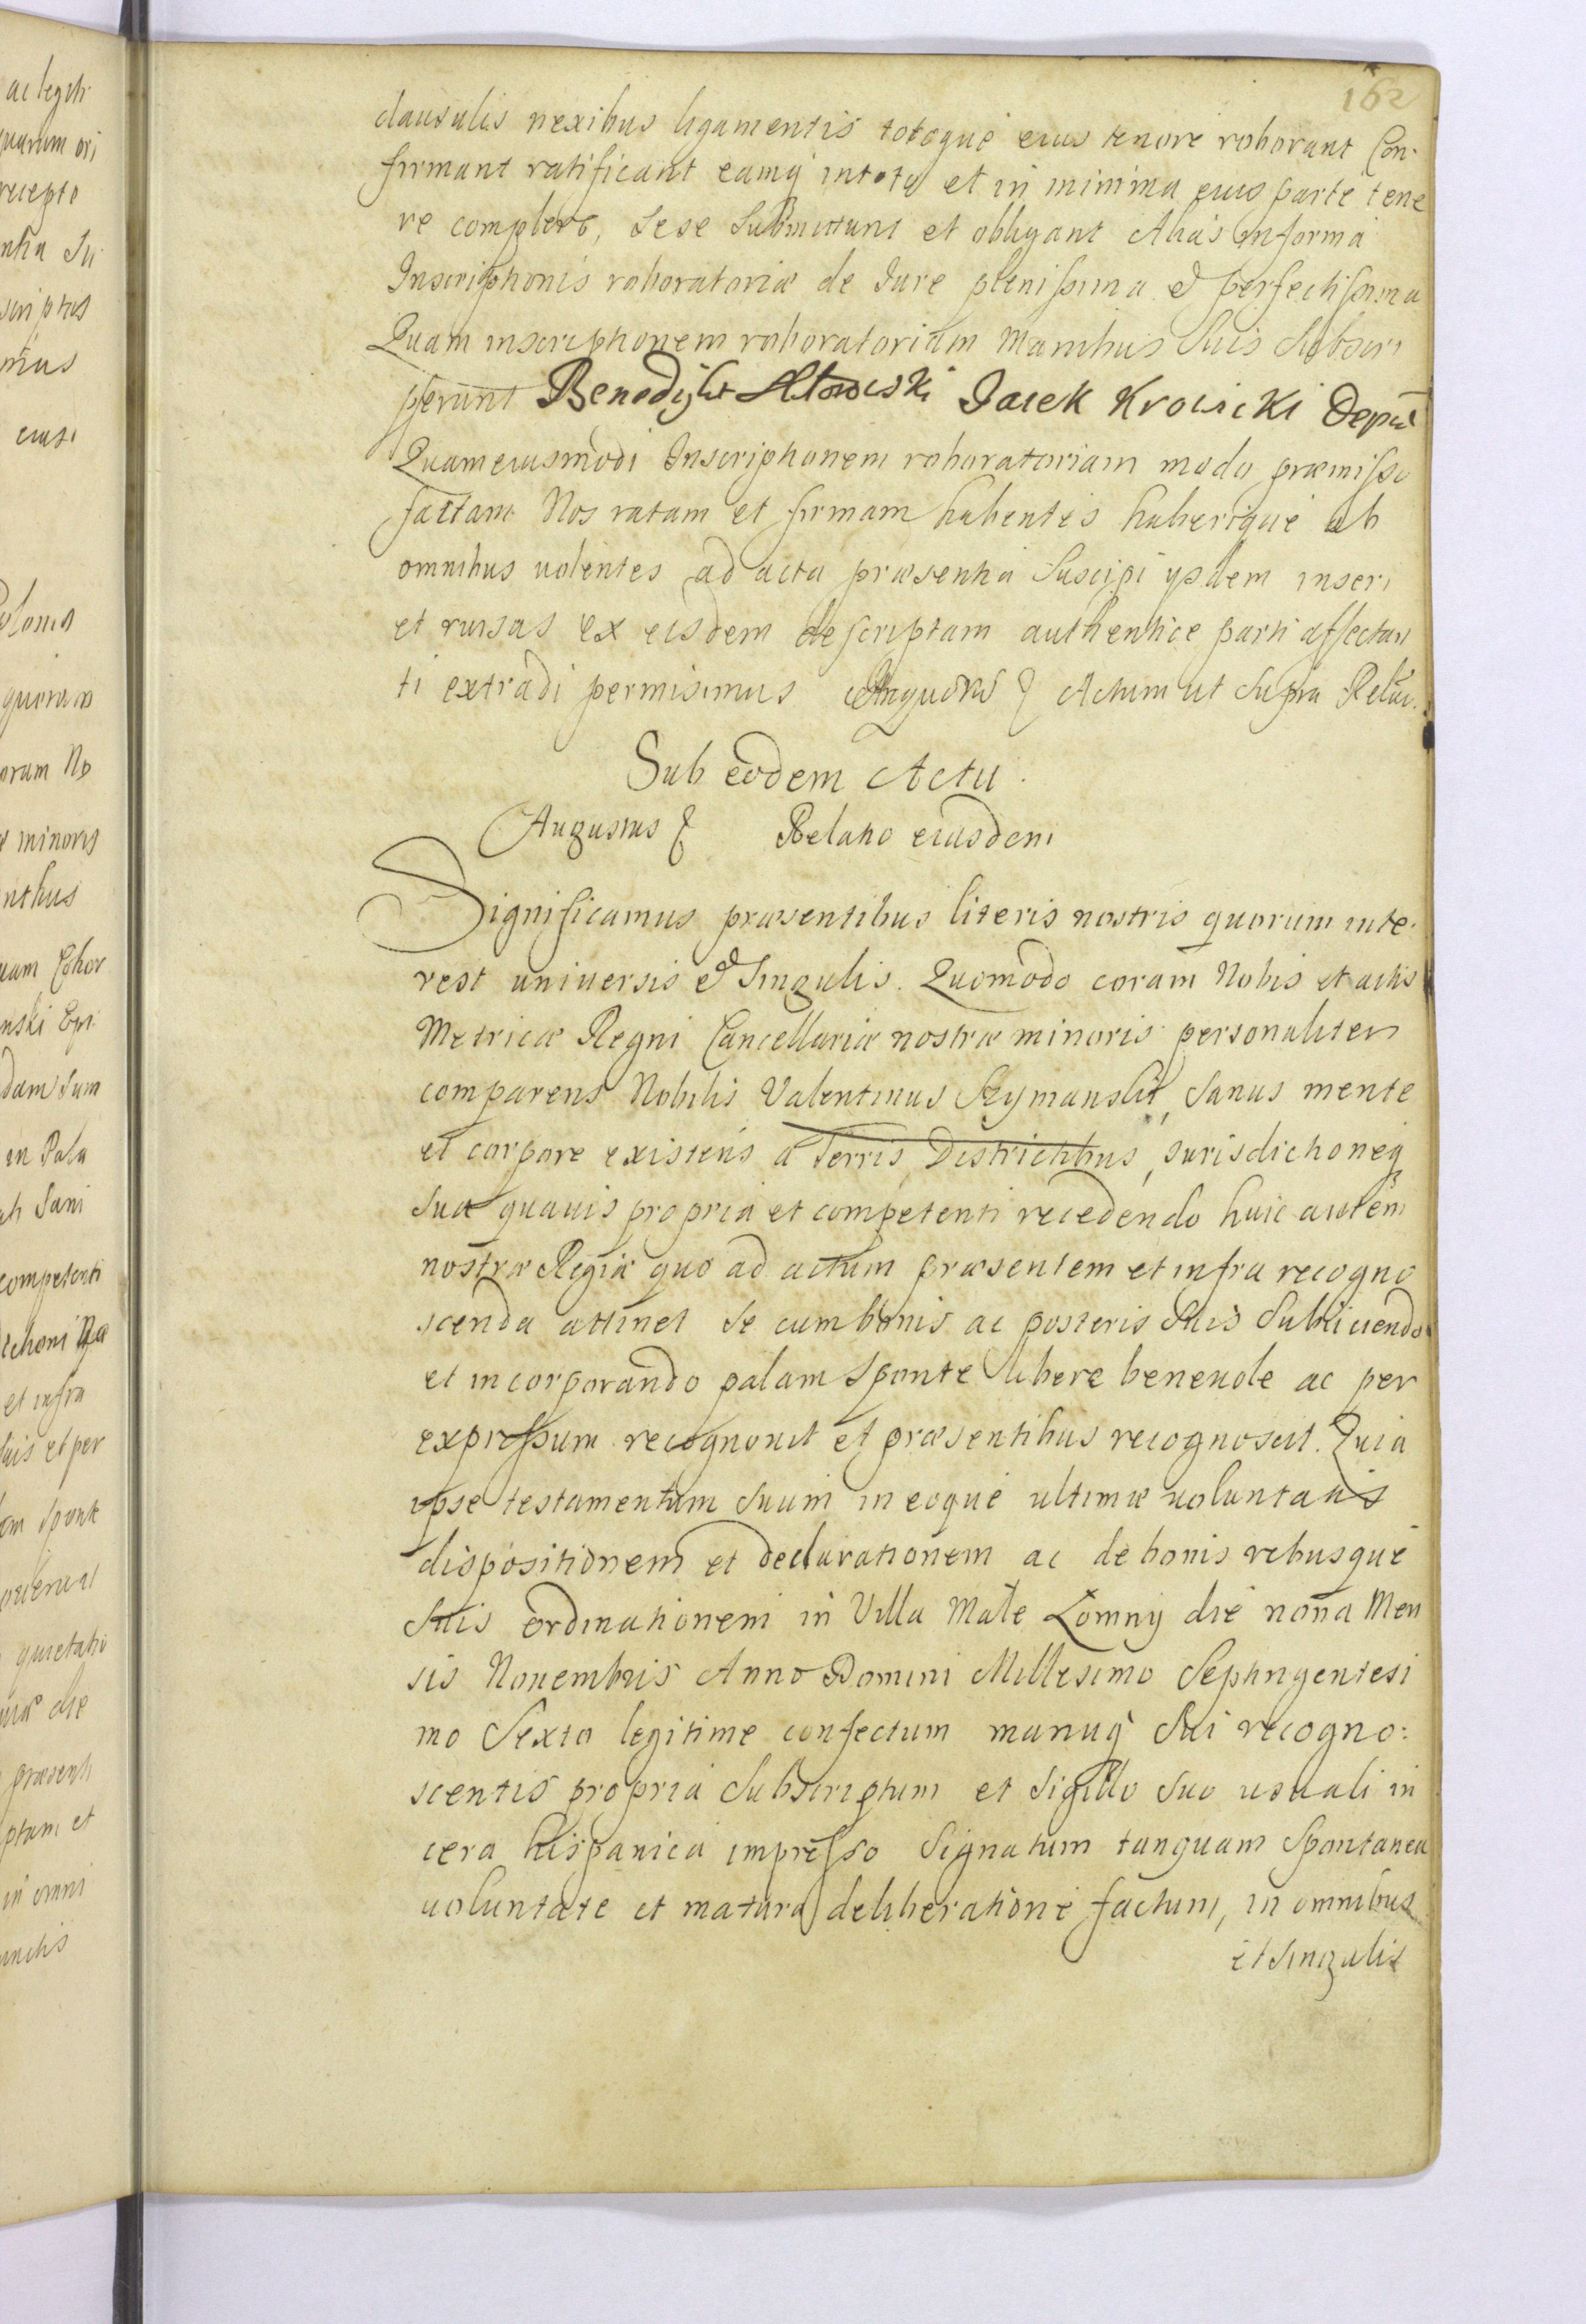 162
clausulis nexibus ligamentis totoque eius tenore roborant Con-
firmant ratificant eamq in toto et in minima eius parte tene
re complere, sese submittunt et obligant Alias in forma
Inscriptionis roboratoriæ de Iure plenissima et perfectissima
Quam inscriptionem roboratoriam manibus suis subscri
pserunt Jacek Krowicki
Quam eiusmodi Inscriptionem roboratoriam modo præmisso
factam Nos ratam et firmam habentes haberique ab
omnibus uolentes ad acta præsentia suscipi ysdem inseri
et rursus ex eisdem descriptam authentice parti affectan
ti extradi permisimus Actum ut supra
Sub eodem Actu.
Augustus Relatio eiusdem
Significamus præsentibus literis nostris quorum inte-
rest uniuersis et singulis. Quomodo coram Nobis et actis
Metricæ Regni Cancellariæ nostræ minoris personaliter
comparens Nobilis Valentinus Szymanski, sanus mente
et corpore existens a Terris, Districtibus, iurisdictioneq
sua quauis propria et competenti recedendo huic autem
nostræ Regiæ quo ad actum præsentem et infra recogno
scenda attinet se cum bonis ac posteris suis subiiciendo
et incorporando palam sponte libere beneuole ac per
expressum recognouit et præsentibus recognoscit. Quia
ipse testamentum suum in eoque ultimæ uoluntatis
dispositionem et declarationem ac de bonis rebusque
suis ordinationem in Villa Małe Łomny die nona Men
sis Nouembris Anno Domini Millesimo Septingentesi
mo Sexto legitime confectum manuq sui recogno:
scentis propria subscriptum et sigillo suo usuali in
cera hispanica impresso signatum tanquam spontanea
uoluntate et matura deliberatione factum, in omnibus
et singulis